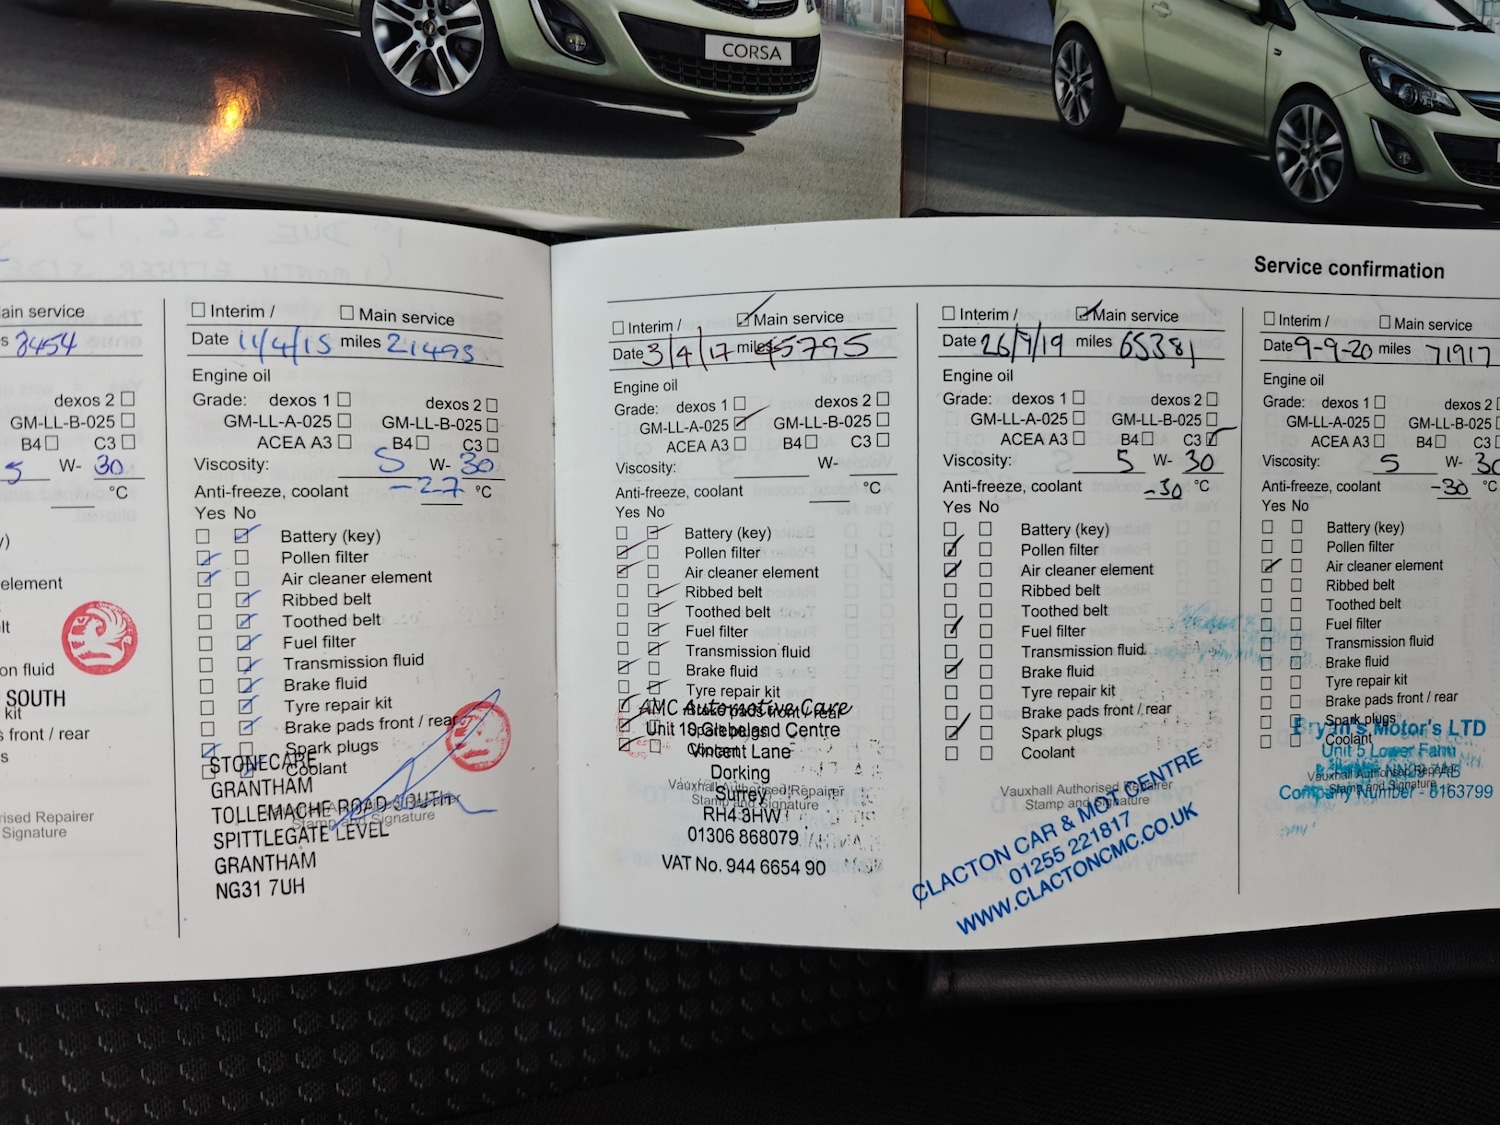 CORSA
Service confirmation
ain service
s 8454
dexos 2
GM-LL-B-025
B4 C3
5 W- 30
°C
element
on fluid
SOUTH
kit
front / rear
ised Repairer
d Signature
Interim / Main service
Date 11/4/15 miles 21493
Engine oil
Grade: dexos 1 dexos 2
GM-LL-A-025 GM-LL-B-025
ACEA A3 B4 C3
Viscosity: 5 W- 30
Anti-freeze, coolant -27 °C
Yes No
Battery (key)
Pollen filter
Air cleaner element
Ribbed belt
Toothed belt
Fuel filter
Transmission fluid
Brake fluid
Tyre repair kit
Brake pads front / rear
Spark plugs
Coolant
STONECARE
GRANTHAM
TOLLEMACHE ROAD SOUTH
SPITTLEGATE LEVEL
GRANTHAM
NG31 7UH
Stamp and Signature
Interim / Main service
Date 3/4/17 miles 45795
Engine oil
Grade: dexos 1 dexos 2
GM-LL-A-025 GM-LL-B-025
ACEA A3 B4 C3
Viscosity: W-
Anti-freeze, coolant °C
Yes No
Battery (key)
Pollen filter
Air cleaner element
Ribbed belt
Toothed belt
Fuel filter
Transmission fluid
Brake fluid
Tyre repair kit
Brake pads front / rear
Spark plugs
Coolant
AMC Automotive Care
Unit 10 Glebeland Centre
Vincent Lane
Dorking
Surrey
RH4 3HW
01306 868079
VAT No. 944 6654 90
Vauxhall Authorised Repairer
Stamp and Signature
Interim / Main service
Date 26/9/19 miles 65381
Engine oil
Grade: dexos 1 dexos 2
GM-LL-A-025 GM-LL-B-025
ACEA A3 B4 C3
Viscosity: 5 W- 30
Anti-freeze, coolant -30 °C
Yes No
Battery (key)
Pollen filter
Air cleaner element
Ribbed belt
Toothed belt
Fuel filter
Transmission fluid
Brake fluid
Tyre repair kit
Brake pads front / rear
Spark plugs
Coolant
Vauxhall Authorised Repairer
Stamp and Signature
CLACTON CAR & MOT CENTRE
01255 221817
WWW.CLACTONCMC.CO.UK
Interim / Main service
Date 9-9-20 miles 71917
Engine oil
Grade: dexos 1 dexos 2
GM-LL-A-025 GM-LL-B-025
ACEA A3 B4 C3
Viscosity: 5 W- 30
Anti-freeze, coolant -30 °C
Yes No
Battery (key)
Pollen filter
Air cleaner element
Ribbed belt
Toothed belt
Fuel filter
Transmission fluid
Brake fluid
Tyre repair kit
Brake pads front / rear
Spark plugs
Coolant
Bryan's Motor's LTD
Unit 5 Lower Farm
Vauxhall Authorised Repairer
Stamp and Signature
Company Number - 8163799